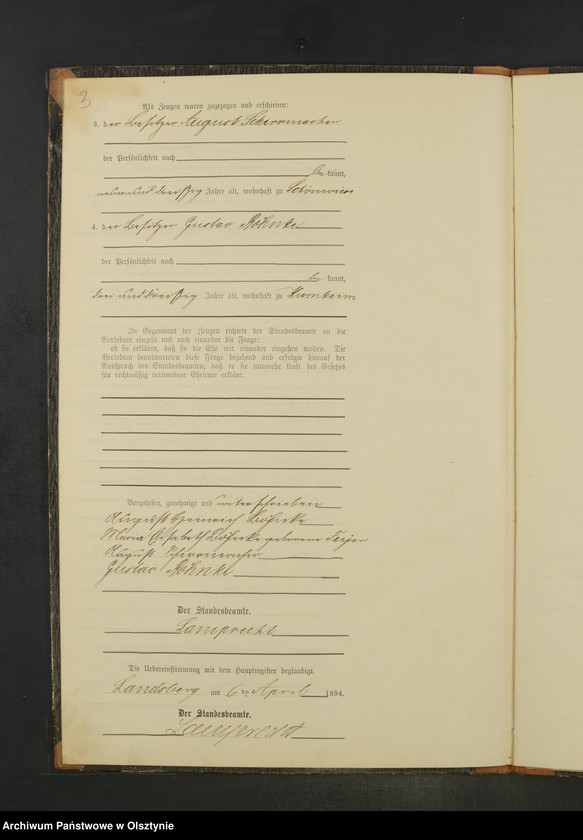 3
Als Zeugen waren zugezogen und erschienen:
3. der Besitzer August Schirrmacher
der Persönlichkeit nach
be kannt,
neununddreißig Jahre alt, wohnhaft zu Schönwiese
4. der Besitzer Gustav Böhnke
der Persönlichkeit nach
be kannt,
dreiunddreißig Jahre alt, wohnhaft zu Kumkeim
In Gegenwart der Zeugen richtete der Standesbeamte an die
Verlobten einzeln und nach einander die Frage:
ob sie erklären, daß sie die Ehe mit einander eingehen wollen. Die
Verlobten beantworteten diese Frage bejahend und erfolgte hierauf der
Ausspruch des Standesbeamten, daß er sie nunmehr kraft des Gesetzes
für rechtmäßig verbundene Eheleute erkläre.
Vorgelesen, genehmigt und unterschrieben
August Heinrich Böhnke
Maria Elisabeth Böhnke geborene
August Schirrmacher
Gustav Böhnke
Der Standesbeamte.
Lamprecht
Die Uebereinstimmung mit dem Hauptregister beglaubigt.
Landsberg am 6 ten April 1894.
Der Standesbeamte.
Lamprecht
Archiwum Państwowe w Olsztynie